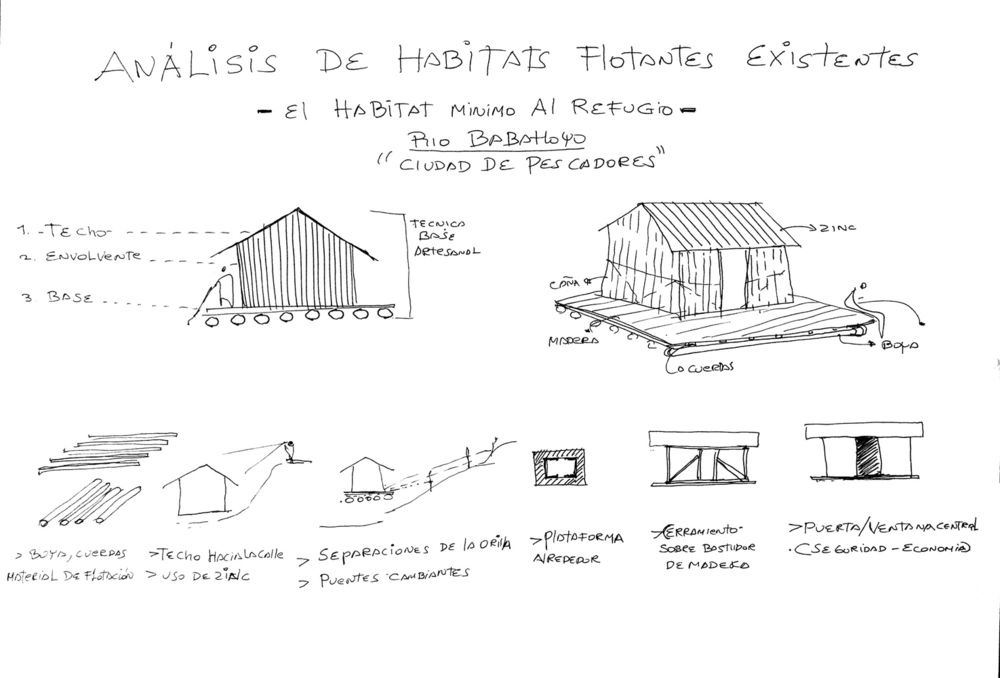 ANÁLISIS DE HABITATS FLOTANTES EXISTENTES
- El HABITAT MINIMO Al REFUGIO -
RIO BABAHOYO
"CIUDAD DE PESCADORES"
1. -TECHO-
2. ENVOLVENTE
3 BASE
TECNICA
BASE
ARTESANAL
ZINC
CAÑA
MADERA
CUERDAS
BOYA
> BOYA, CUERDAS
MATERIAL DE FLOTACIÓN
> TECHO HACIA LA CALLE
> USO DE ZINC
> SEPARACIONES DE LA ORILLA
> PUENTES CAMBIANTES
> PLATAFORMA
ALREDEDOR
> CERRAMIENTO
SOBRE BASTIDOR
DE MADERA
> PUERTA/VENTANA CENTRAL
. CSEGURIDAD - ECONOMIA)